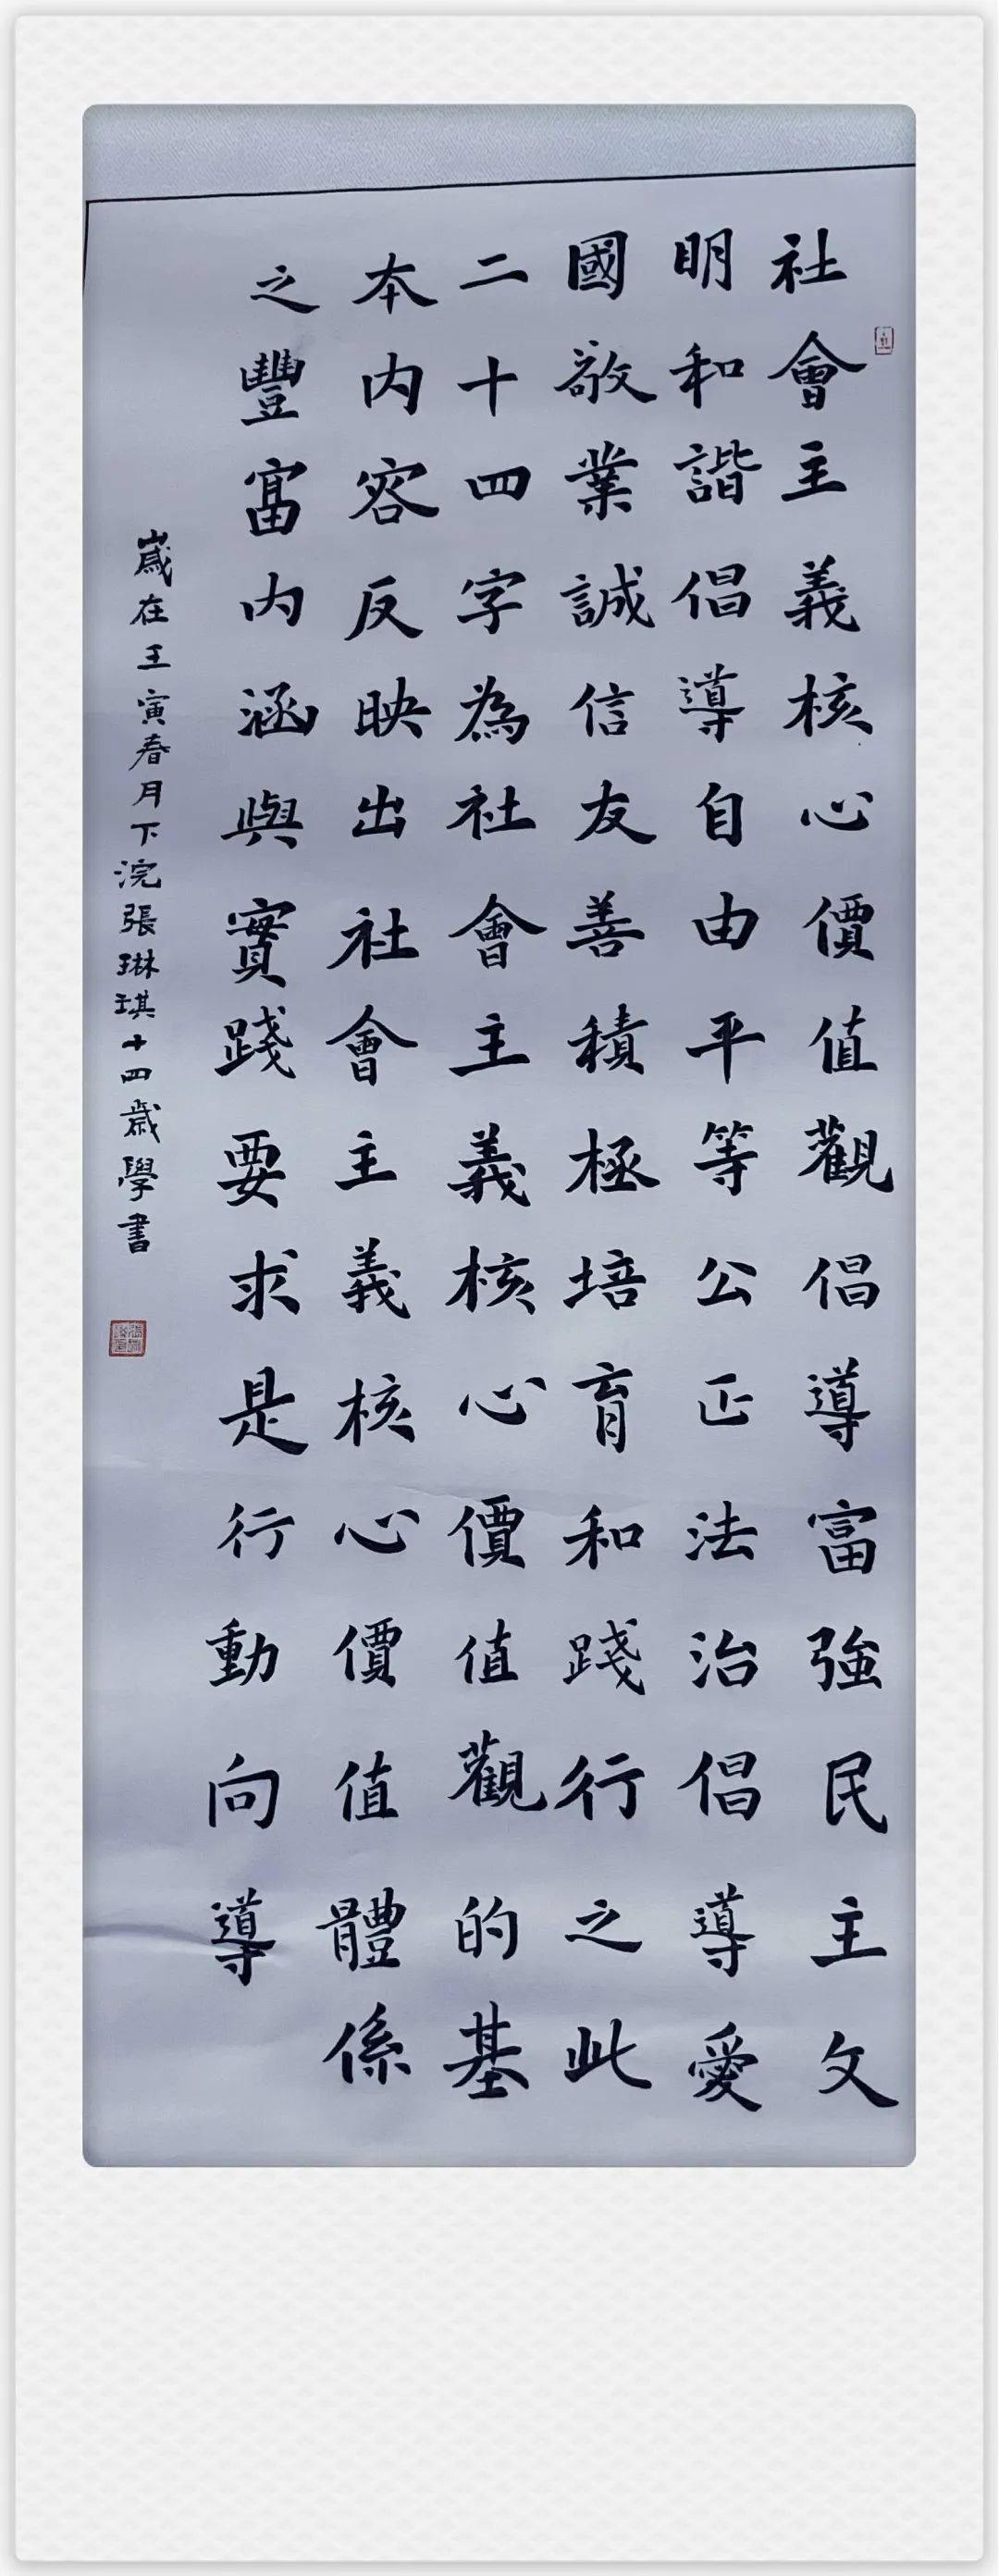 社會主義核心價值觀倡導富強民主文
明和諧倡導自由平等公正法治倡導愛
國敬業誠信友善積極培育和踐行之此
二十四字為社會主義核心價值觀的基
本内容反映出社會主義核心價值體係
之豐富内涵與實踐要求是行動向導
歲在王寅春月下浣張琳琪十四歲學書